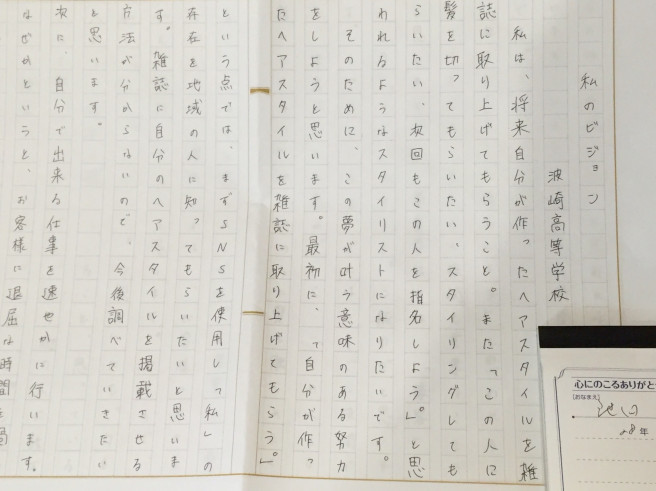 私のビジョン
波崎高等学校
私は、将来自分が作ったヘアスタイルを雑
誌に取り上げてもらうこと。また「この人に
髪を切ってもらいたい、スタイリングしても
らいたい、次回もこの人を指名しよう」。と思
われるようなスタイリストになりたいです。
そのために、この夢が叶う意味のある努力
をしようと思います。最初に、「自分が作っ
たヘアスタイルを雑誌に取り上げてもらう」。
という点では、まずSNSを使用し「私」の
存在を地域の人に知ってもらいたいと思いま
す。雑誌に自分のヘアスタイルを掲載させる
方法が分からないので、今後調べていきたい
と思います。
次に、自分で出来る仕事を速やかに行います。
なぜかというと、お客様に退屈な時間を過
心にのこるありがと
(おなまえ)
池口
28年